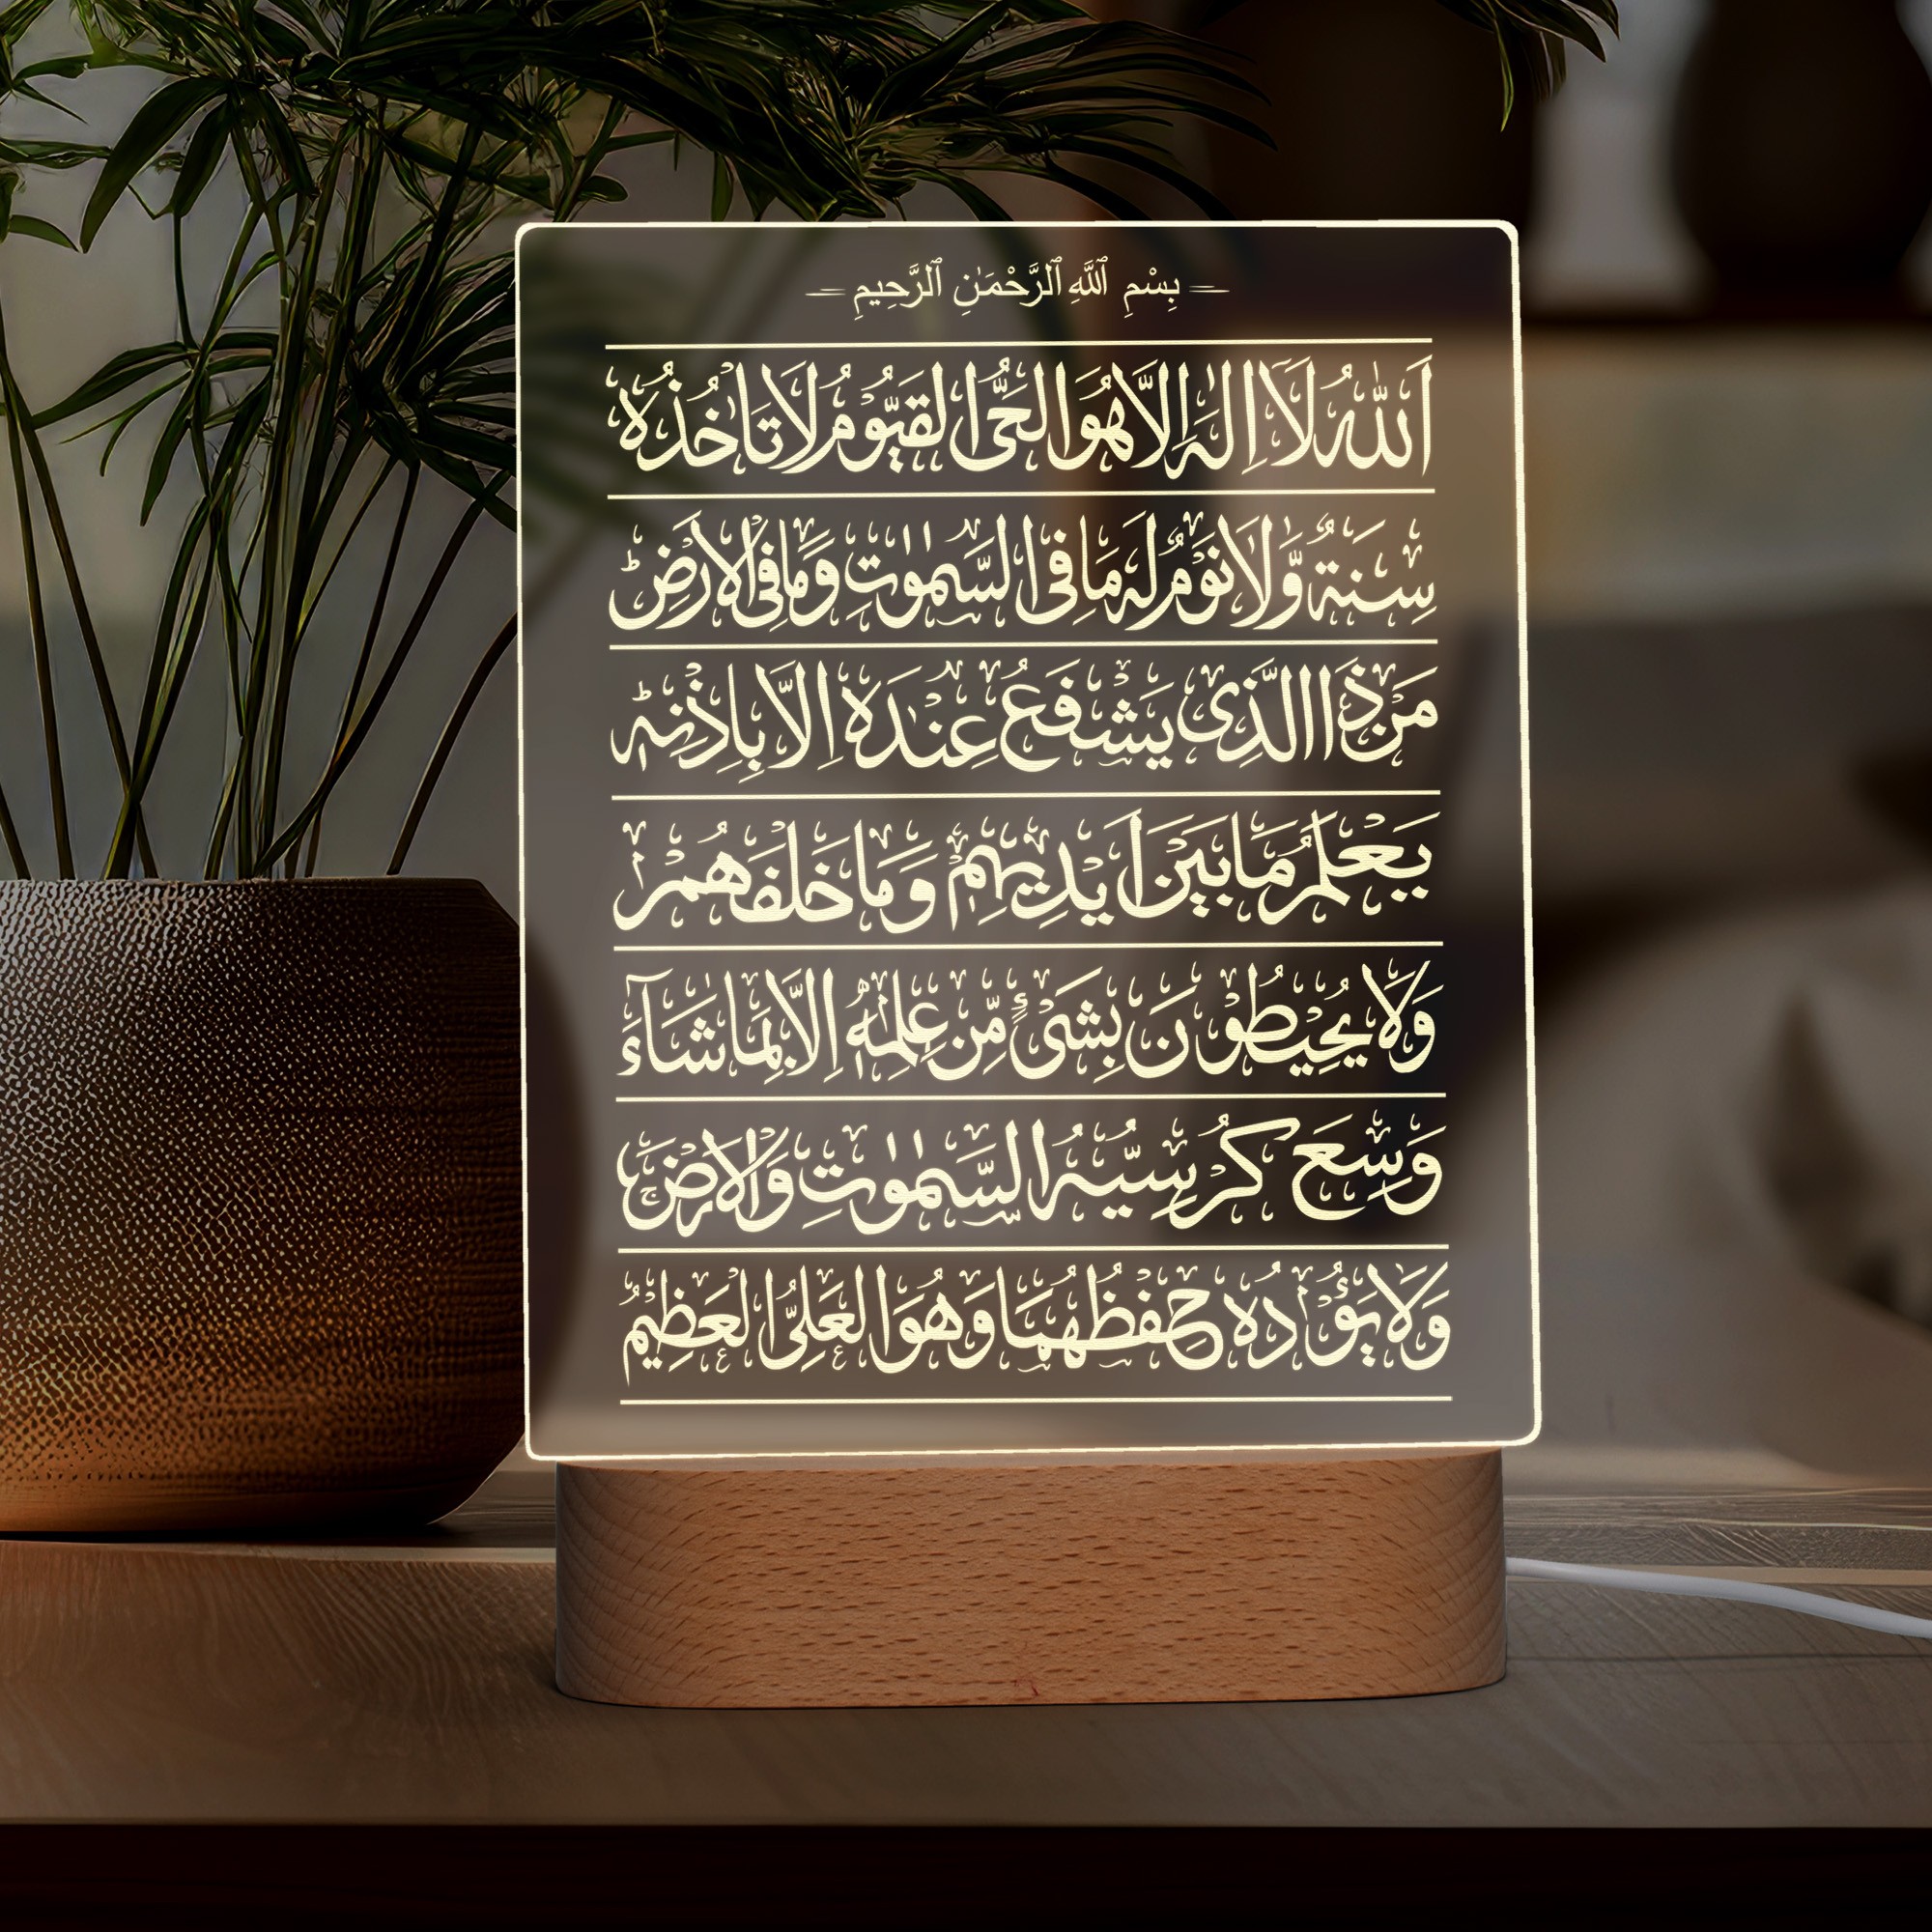 بِسْمِ ٱللَّهِ ٱلرَّحْمَٰنِ ٱلرَّحِيمِ
اَللّٰهُ لَآ اِلٰهَ اِلَّا هُوَ الْحَيُّ الْقَيُّوْمُ لَا تَاْخُذُهٗ
سِنَةٌ وَّلَا نَوْمٌ لَهٗ مَا فِى السَّمٰوٰتِ وَمَا فِى الْاَرْضِ ؕ
مَنْ ذَا الَّذِىْ يَشْفَعُ عِنْدَهٗٓ اِلَّا بِاِذْنِهٖ ؕ
يَعْلَمُ مَا بَيْنَ اَيْدِيْهِمْ وَمَا خَلْفَهُمْ
وَلَا يُحِيْطُوْنَ بِشَىْءٍ مِّنْ عِلْمِهٖٓ اِلَّا بِمَا شَآءَ
وَسِعَ كُرْسِيُّهُ السَّمٰوٰتِ وَالْاَرْضَ ۚ
وَلَا يَـُٔوْدُهٗ حِفْظُهُمَا وَهُوَ الْعَلِىُّ الْعَظِيْمُ